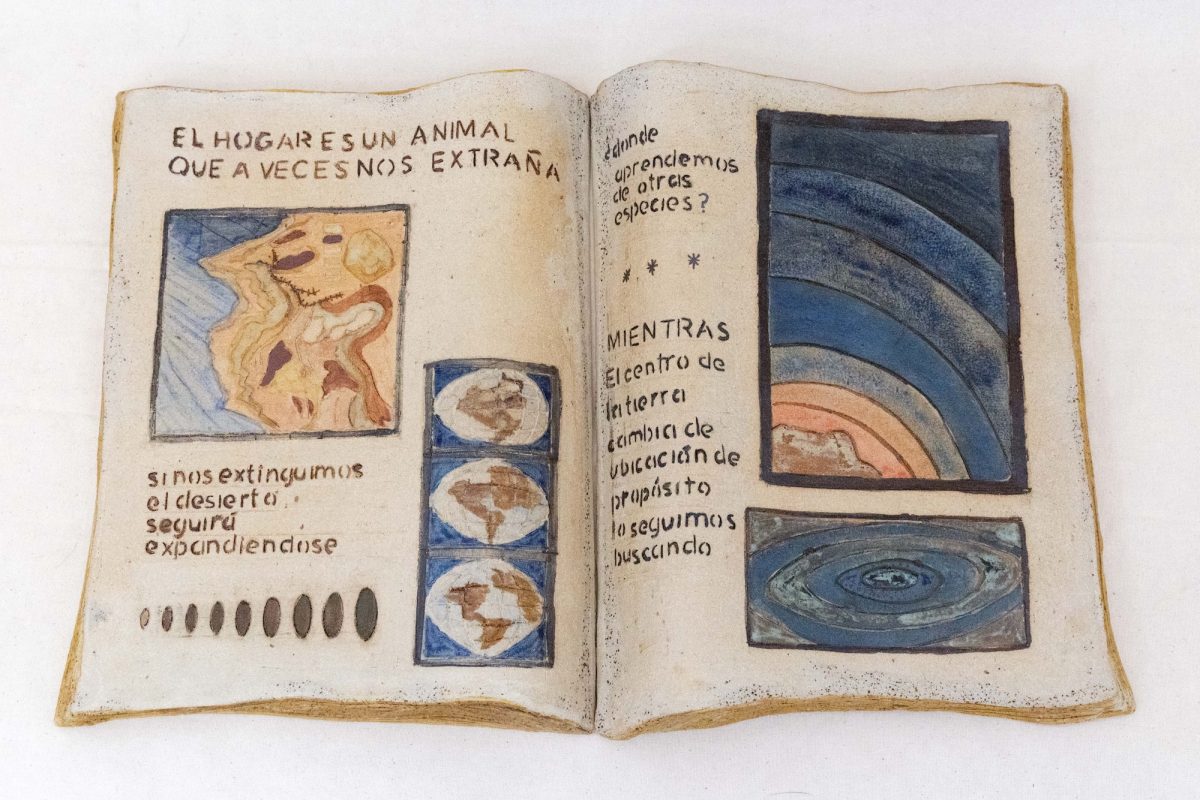 EL HOGAR ES UN ANIMAL
QUE A VECES NOS EXTRAÑA
si nos extinguimos
el desierto
seguirá
expandiendose
¿donde
aprendemos
de otras
especies?
* * *
MIENTRAS
El centro de
la tierra
cambia de
ubicación de
propósito
lo seguimos
buscando